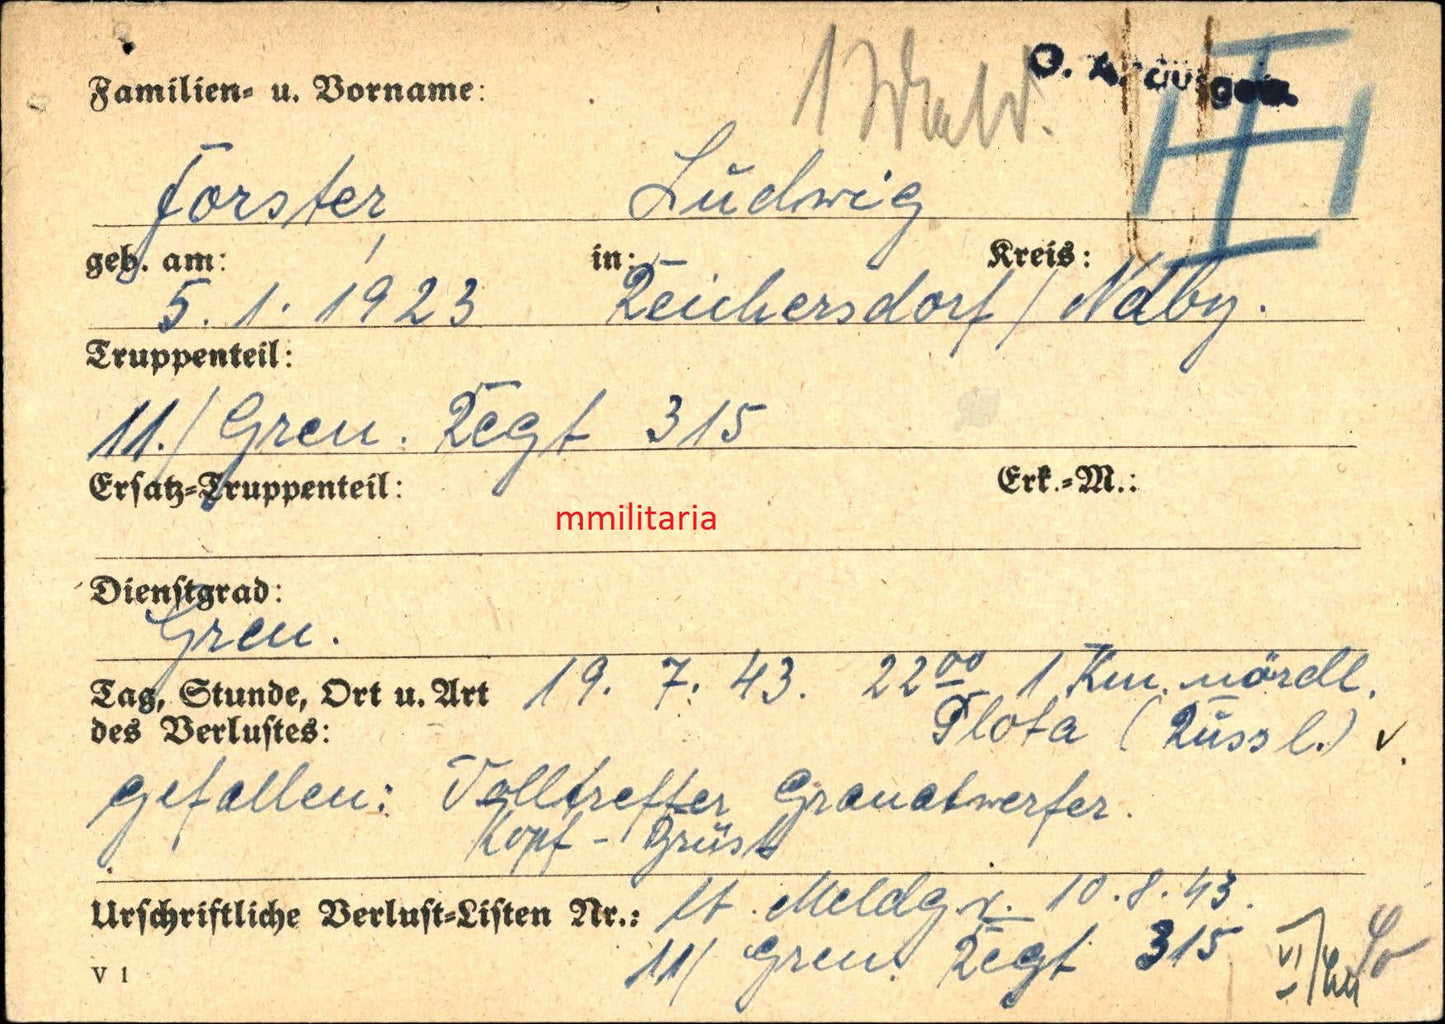 Familien- u. Vorname:
Forster Ludwig
geb. am: in: Kreis:
5. 1. 1923 Reichersdorf / Ndby.
Truppenteil:
11./ Gren. Regt 315
Ersatz-Truppenteil: Erk.-M.:
mmilitaria
Dienstgrad:
Gren.
Tag, Stunde, Ort u. Art 19. 7. 43. 22⁰⁰ 1 Km. nördl.
des Verlustes: Plota (Russl.)
gefallen: Volltreffer Granatwerfer.
Kopf - Brust
Urschriftliche Verlust-Listen Nr.: lt. Meldg v. 10.8.43.
11/ Gren. Regt 315
V 1